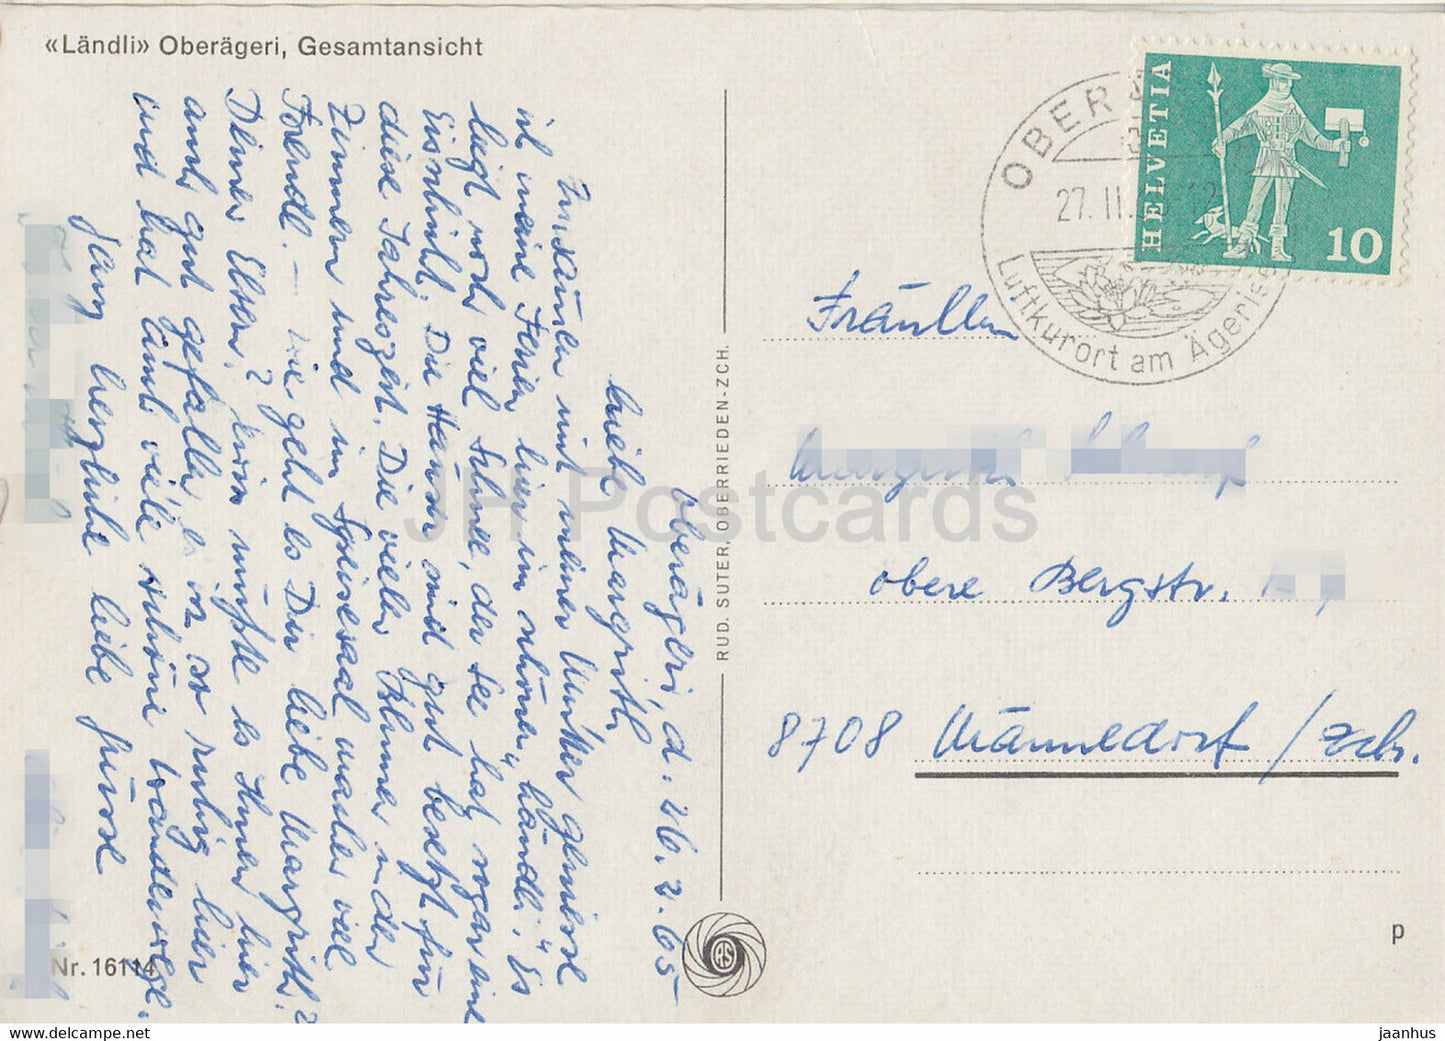 «Ländli» Oberägeri, Gesamtansicht
Oberägeri, d. 26.2.65
Liebe Margrith
Zusammen mit meiner Mutter geniesse
ich meine Ferien hier im schönen „Ländli“. Es
liegt noch viel Schnee, der See hat sogar eine
Eisschicht. Die Häuser sind gut besetzt für
diese Jahreszeit. Die vielen Blumen in den
Zimmern und im Speisesaal machen viel
Freude. – wie geht es Dir liebe Margrith?
Deinen Eltern? Ihnen müsste es hier
auch gut gefallen, es ist so ruhig hier
und hat auch viele schöne Wanderwege.
Ganz herzliche liebe Grüsse
Nr. 16114
RUD. SUTER, OBERRIEDEN-ZCH.
RS
OBER
27. II. 12
Luftkurort am Ägeris
HELVETIA
10
Fräulein
obere Bergstr.
8708 Männedorf / Zch.
p
JH Postcards
jaanhus
https://www.delcampe.net